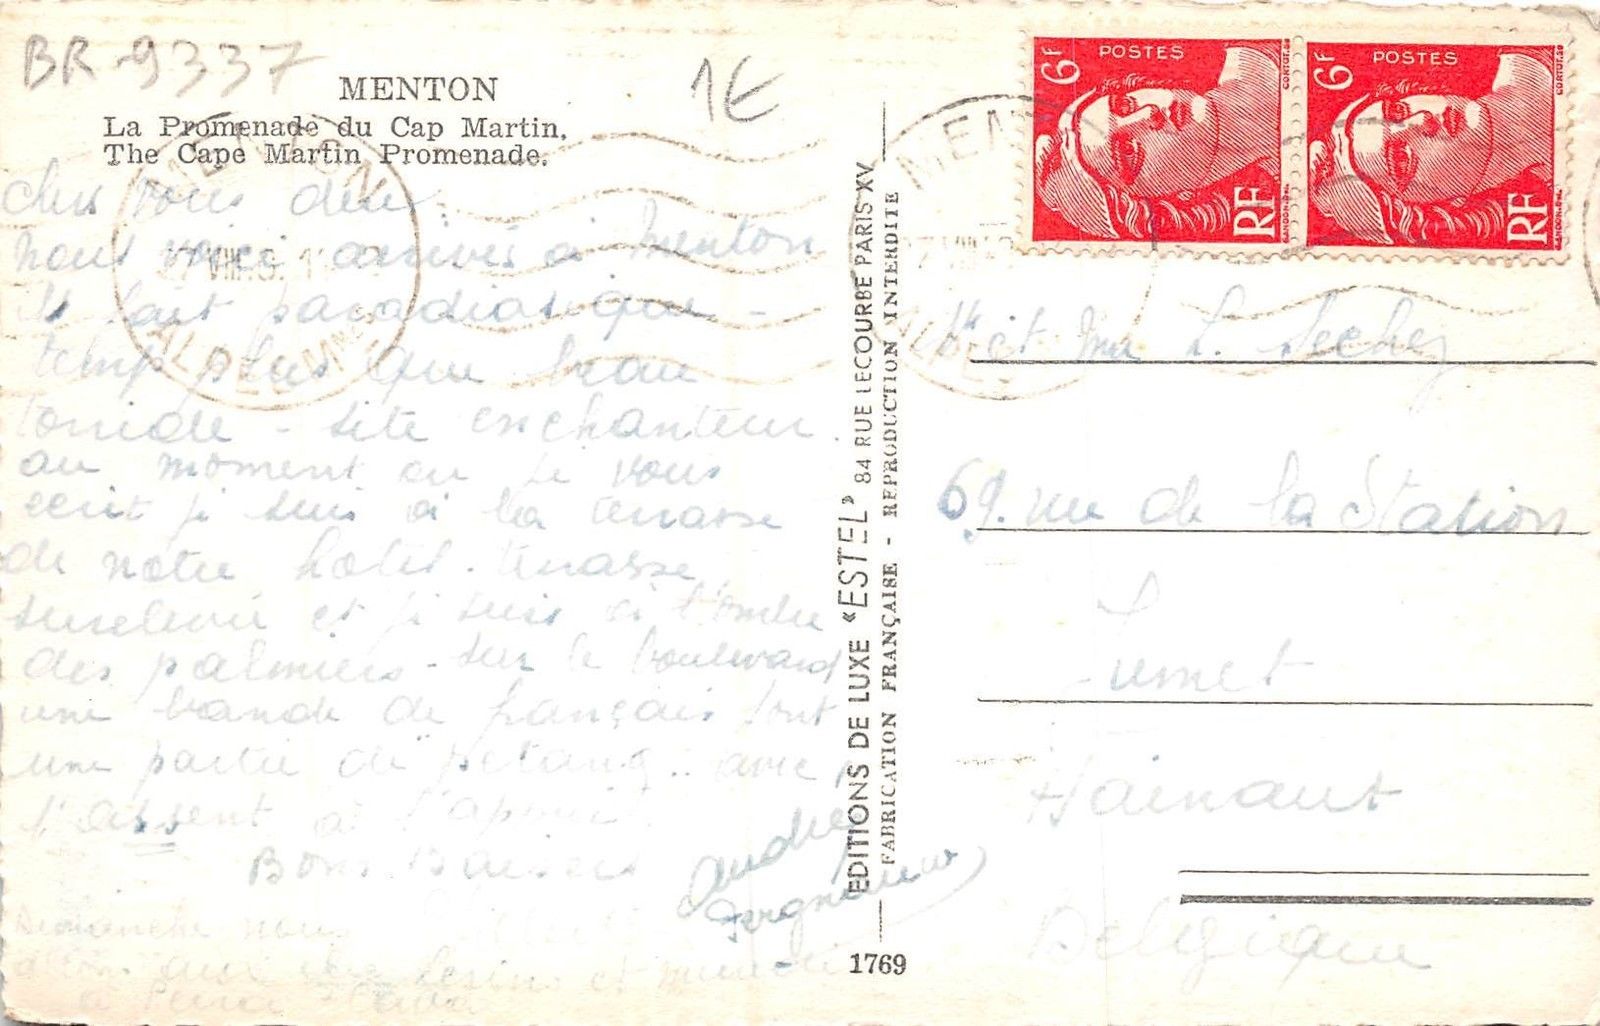 BR-9337
1€
MENTON
La Promenade du Cap Martin.
The Cape Martin Promenade.
Chers vous deux
nous voici arrivés à Menton
Il fait paradisiaque -
temps plus que beau
torride - site enchanteur.
au moment ou je vous
ecrit je suis à la terrasse
de notre hotel. terrasse
surelevée et je suis à l'ombre
des palmiers - sur le boulevard
une bande de français font
une partie de petanq.. avec
l'assent à l'appui
Bons Baisers
André
Dimanche nous
et
à
EDITIONS DE LUXE "ESTEL" 84 RUE LECOURBE PARIS XV
FABRICATION FRANÇAISE - REPRODUCTION INTERDITE
1769
MENTON
ALPES MMES
6F POSTES RF
6F POSTES RF
Mr et Me L. Sechez
69. rue de la Station
Jumet
Hainaut
Belgique